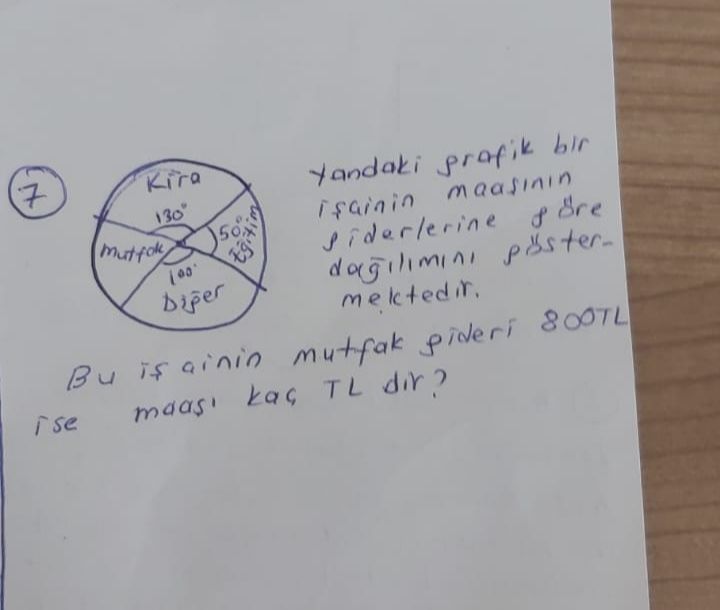 7
Kira
130°
50°
Eğitim
Mutfak
100°
Diğer
Yandaki grafik bir
işçinin maaşının
giderlerine göre
dağılımını göster-
mektedir.
Bu işçinin mutfak gideri 800TL
ise maaşı kaç TL dir?